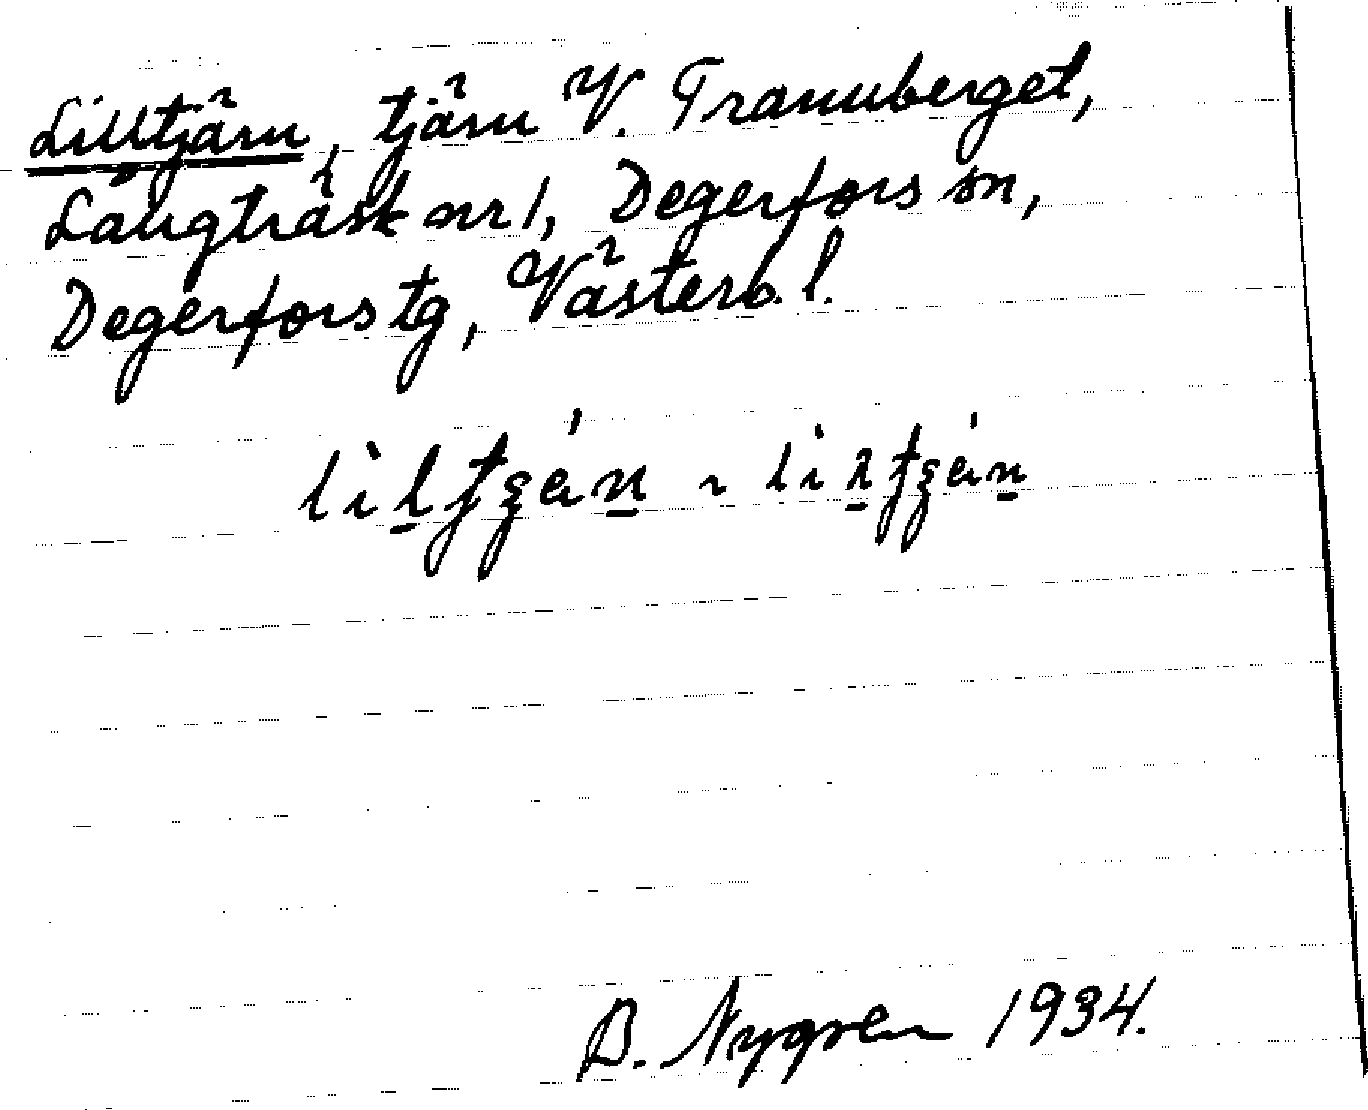 Lilltjärn, tjärn V. Trannberget,
Långträsk nr 1, Degerfors sn,
Degerfors tg, Västerb. l.
B. Nygren 1934.